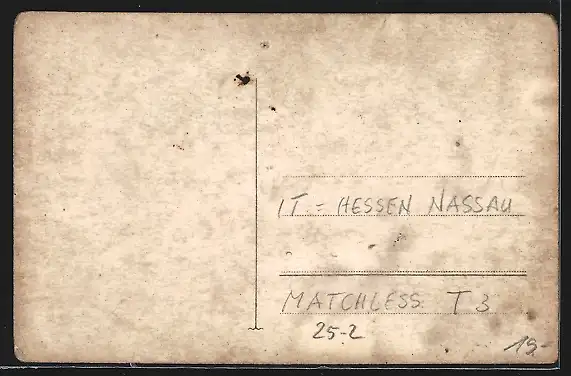 IT = HESSEN NASSAU
MATCHLESS: T 3
25-2
19.-